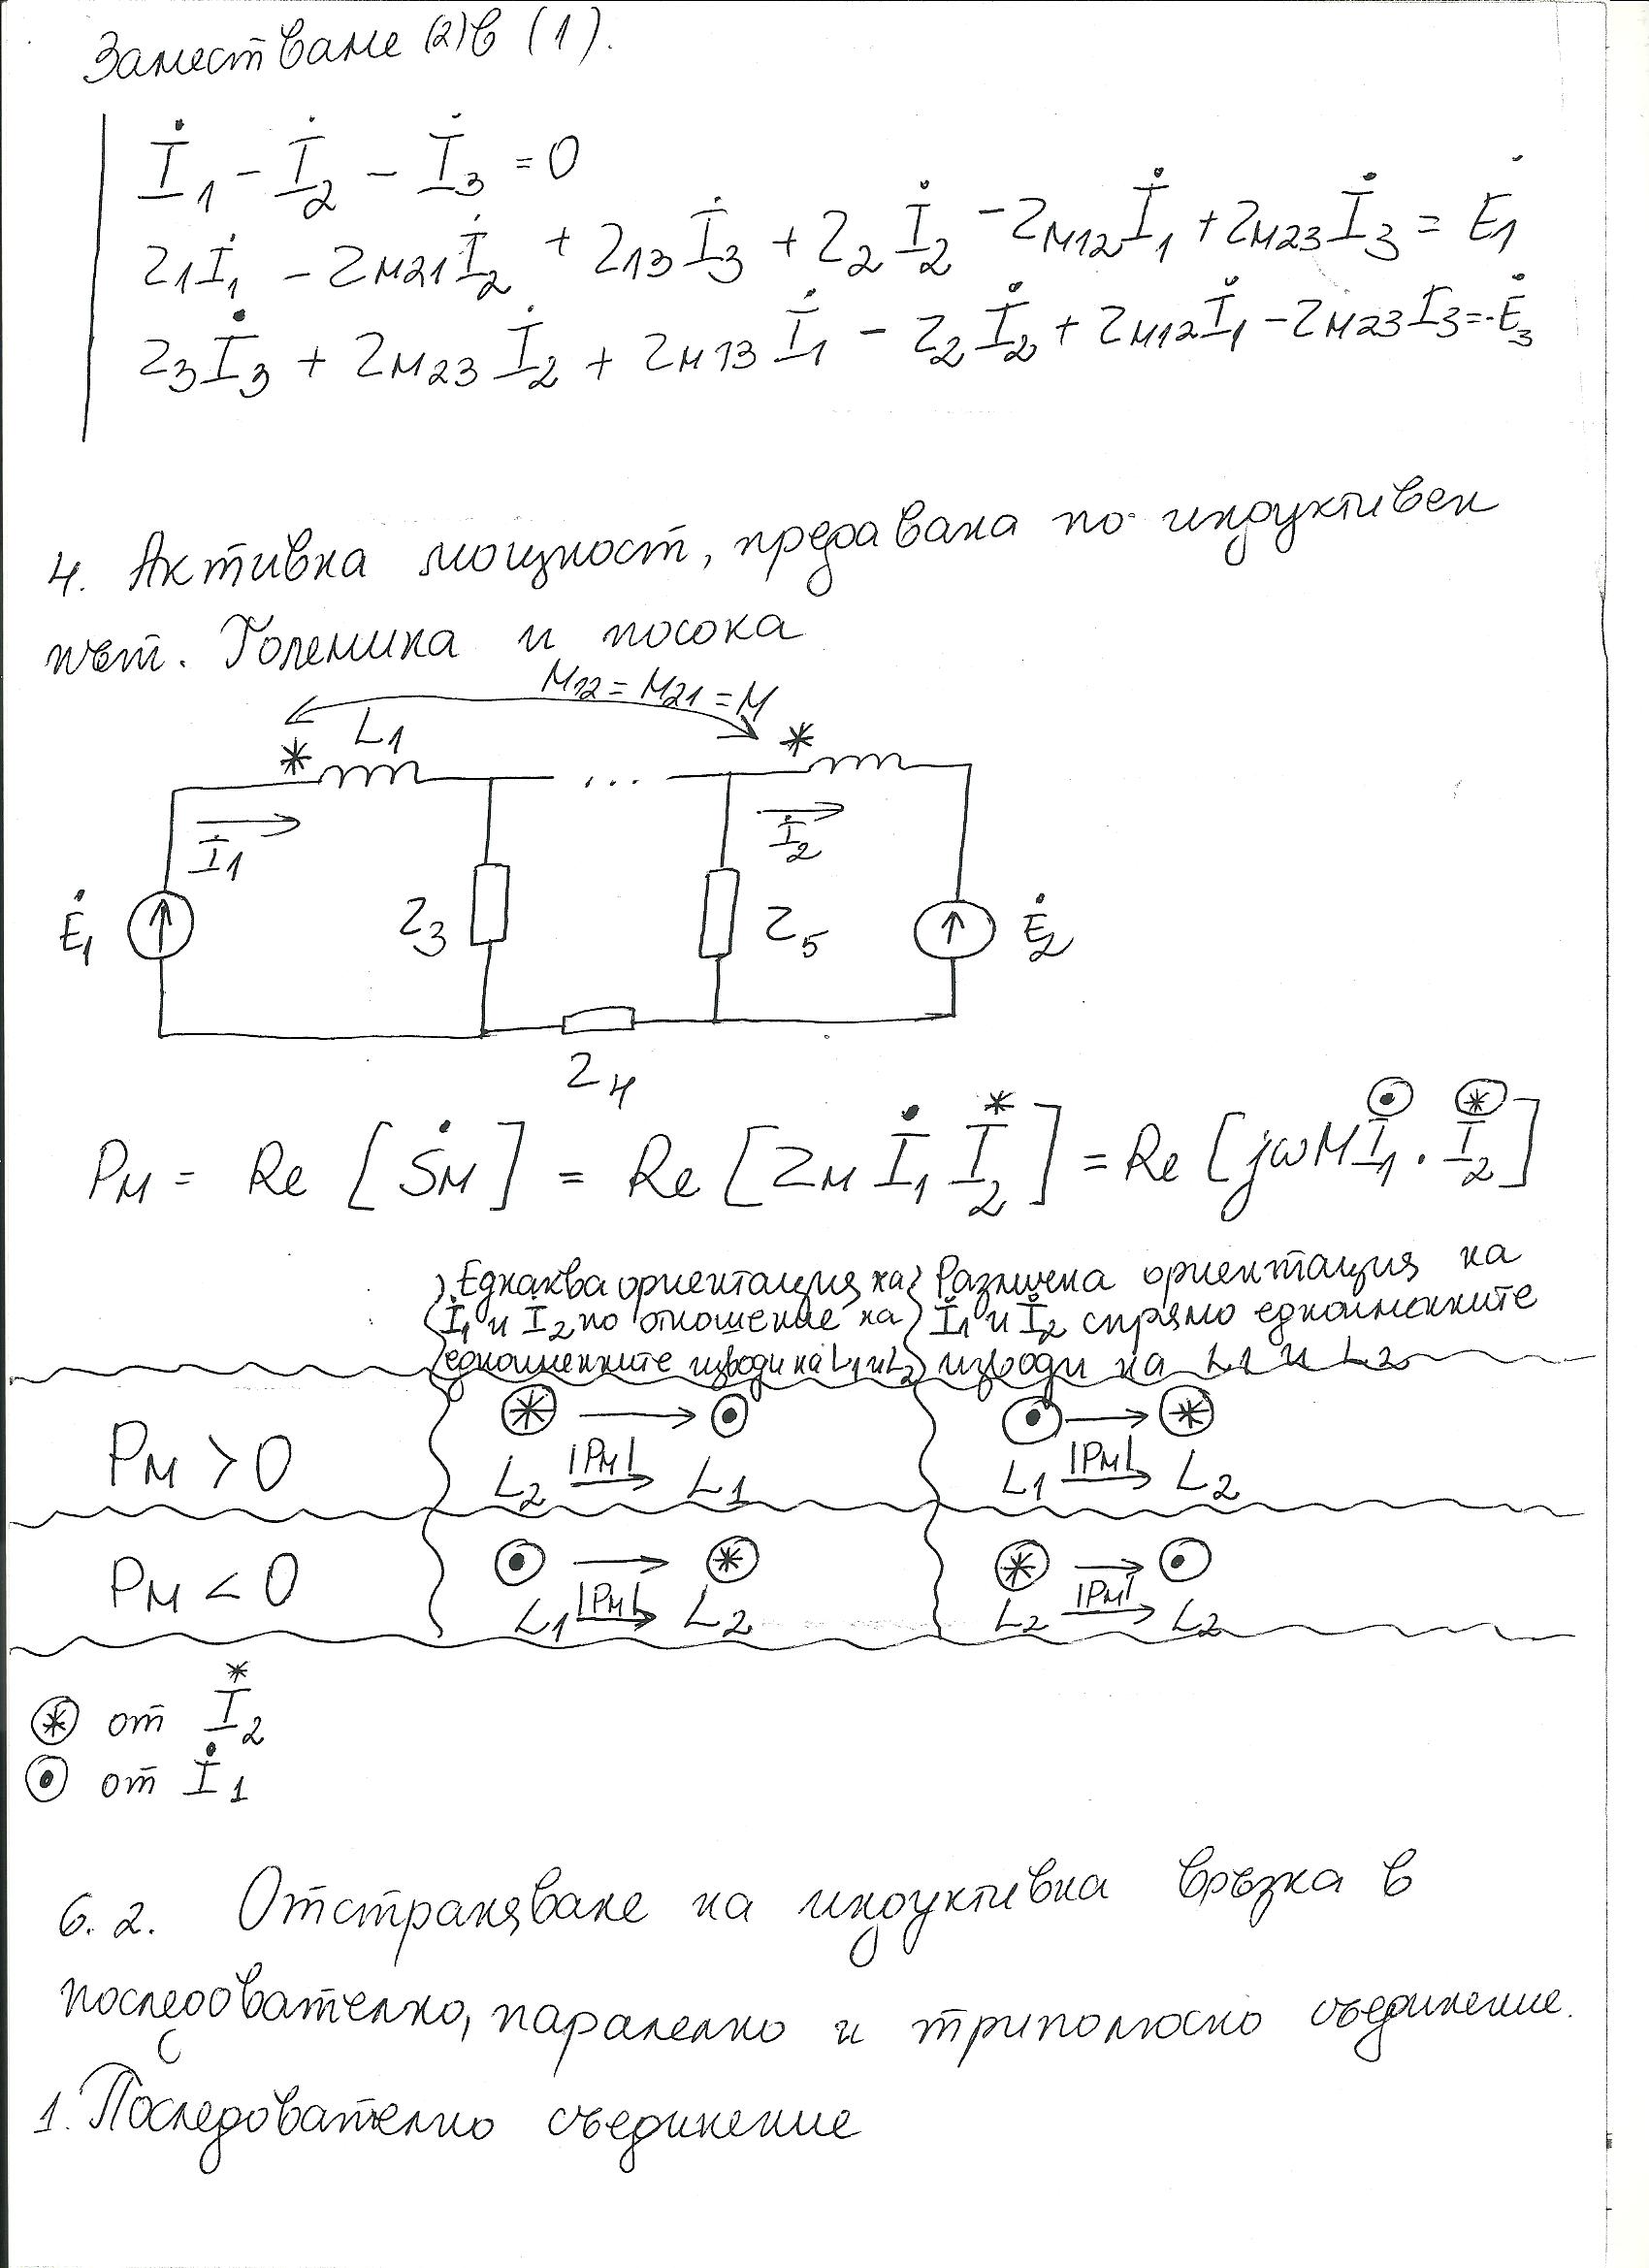 Заместваме (2) в (1).
İ1 - İ2 - İ3 = 0
Z1İ1 - ZM21İ2 + Z13İ3 + Z2İ2 - ZM12İ1 + ZM23İ3 = Ė1
Z3İ3 + ZM23İ2 + ZM13İ1 - Z2İ2 + ZM12İ1 - ZM23İ3 = -Ė3
4. Активна мощност, предавана по индуктивен
път. Големина и посока
M12 = M21 = M
* L1 ... *
İ1 İ2
Ė1 Z3 Z5 Ė2
Z4
PM = Re [ṠM] = Re [ZM İ1 I*2] = Re [jωMİ1 . I*2]
Еднаква ориентация на
İ1 и İ2 по отношение на
едноименните изводи на L1 и L2
Различна ориентация на
İ1 и İ2 спрямо едноименните
изводи на L1 и L2
PM > 0
⊛ → ⊙
L2 |PM| → L1
⊙ → ⊛
L1 |PM| → L2
PM < 0
⊙ → ⊛
L1 |PM| → L2
⊛ → ⊙
L2 |PM| → L2
⊛ от I*2
⊙ от İ1
6.2. Отстраняване на индуктивна връзка в
последователно, паралелно и триполюсно съединение.
1. Последователно съединение